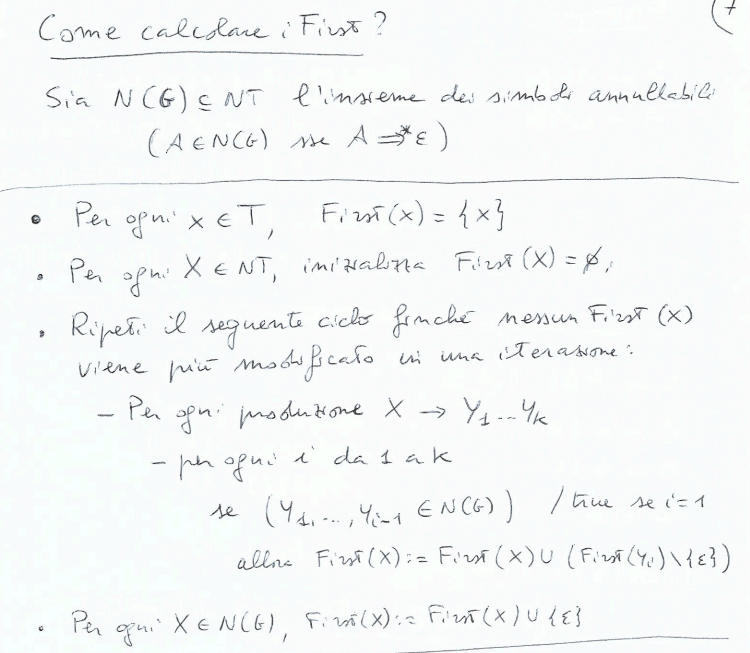 (7
Come calcolare i First?
Sia N(G) ⊆ NT l'insieme dei simboli annullabili
(A ∈ N(G) sse A ⇒* ε)
• Per ogni x ∈ T, First(x) = {x}
• Per ogni X ∈ NT, inizializza First(X) = ∅;
• Ripeti il seguente ciclo finché nessun First(X)
viene più modificato in una iterazione:
– Per ogni produzione X → Y₁...Yₖ
– per ogni i da 1 a k
se (Y₁,...,Yᵢ₋₁ ∈ N(G)) / true se i=1
allora First(X) := First(X) ∪ (First(Yᵢ) \ {ε})
• Per ogni X ∈ N(G), First(X) := First(X) ∪ {ε}